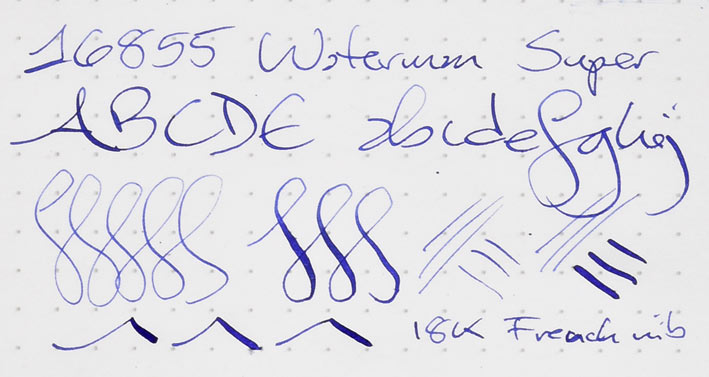 16855 Waterman Super
ABCDE abcdefghij
18K French nib